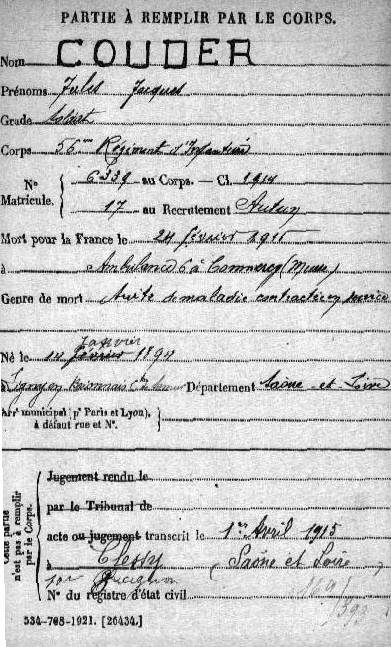 PARTIE À REMPLIR PAR LE CORPS.
Nom COUDER
Prénoms Jules Jacques
Grade Soldat
Corps 56me Régiment d'Infanterie
No Matricule. 6339 au Corps. — Cl. 1914
17 au Recrutement Autun
Mort pour la France le 24 février 1915
à Ambulance 6 à Commercy (Meuse)
Genre de mort Suite de maladie contractée en service
janvier
Né le 14 février 1894
à Ligny en Brionnais Département Saône-et-Loire
Arrt municipal (pr Paris et Lyon),
à défaut rue et No.
Cette partie
n'est pas à remplir
par le Corps.
Jugement rendu le
par le Tribunal de
acte ou jugement transcrit le 1er Avril 1915
à Clessy Saône et Loire
par
No du registre d'état civil
534-708-1921. [26434.]